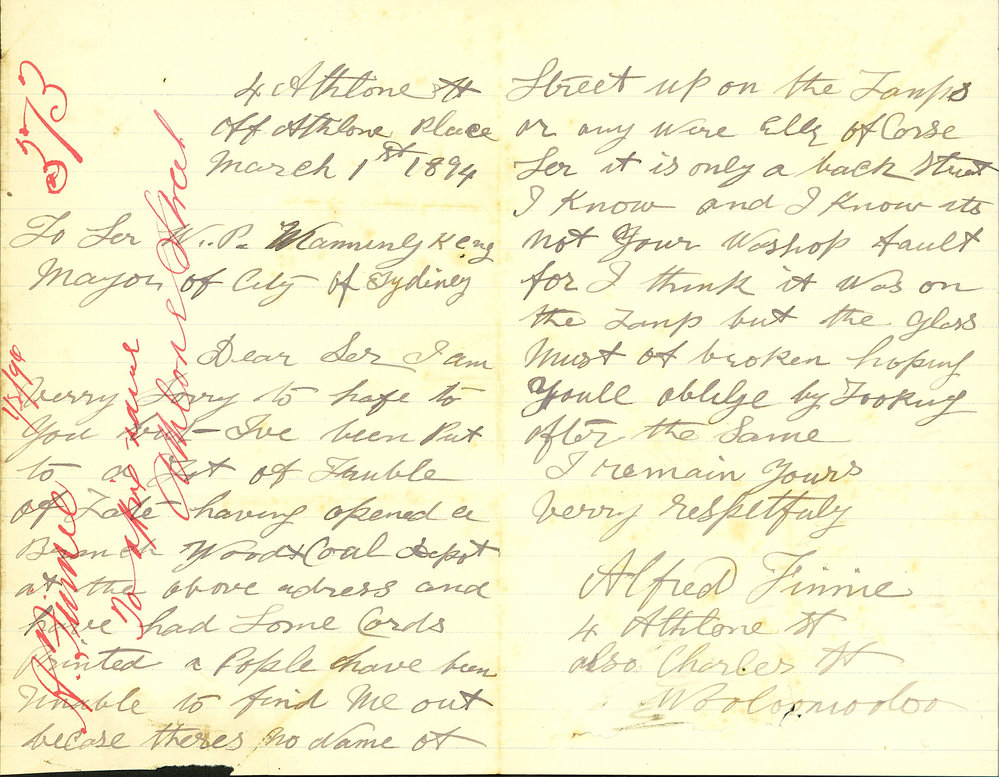 4 Athlone St
off Athlone Place
March 1st 1894
To Ser W. P. Manning Keng
Mayor of City of Sydiney
Dear Ser I am
verry Sorry to hafe to
You but Ive been Put
to a Lot of Trubble
of Late having opened a
Branch Wood & Coal depot
at the above adress and
have had Some Cards
Printed a Pople have been
Unable to find Me out
becase theres no Name of
Street up on the Lamps
or any Were Elly of Corse
Ser it is only a back Street
I Know and I Know its
not Your Waship fault
for I think it Was on
the Lamp but the Glass
Must of broken hoping
Youll oblige by Looking
after the Same
I remain Yours
Verry Respetfuly
Alfred Finnie
4 Athlone St
also Charles St
Wooloomooloo
373
1/3/94
A. Finnie
To affix name
Athlone Street